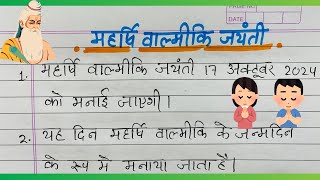 PAGE
DATE
महर्षि वाल्मीकि जयंती
1. महर्षि वाल्मीकि जयंती 17 अक्टूबर 2024
को मनाई जाएगी।
2. यह दिन महर्षि वाल्मीकि के जन्मदिन
के रूप में मनाया जाता है।